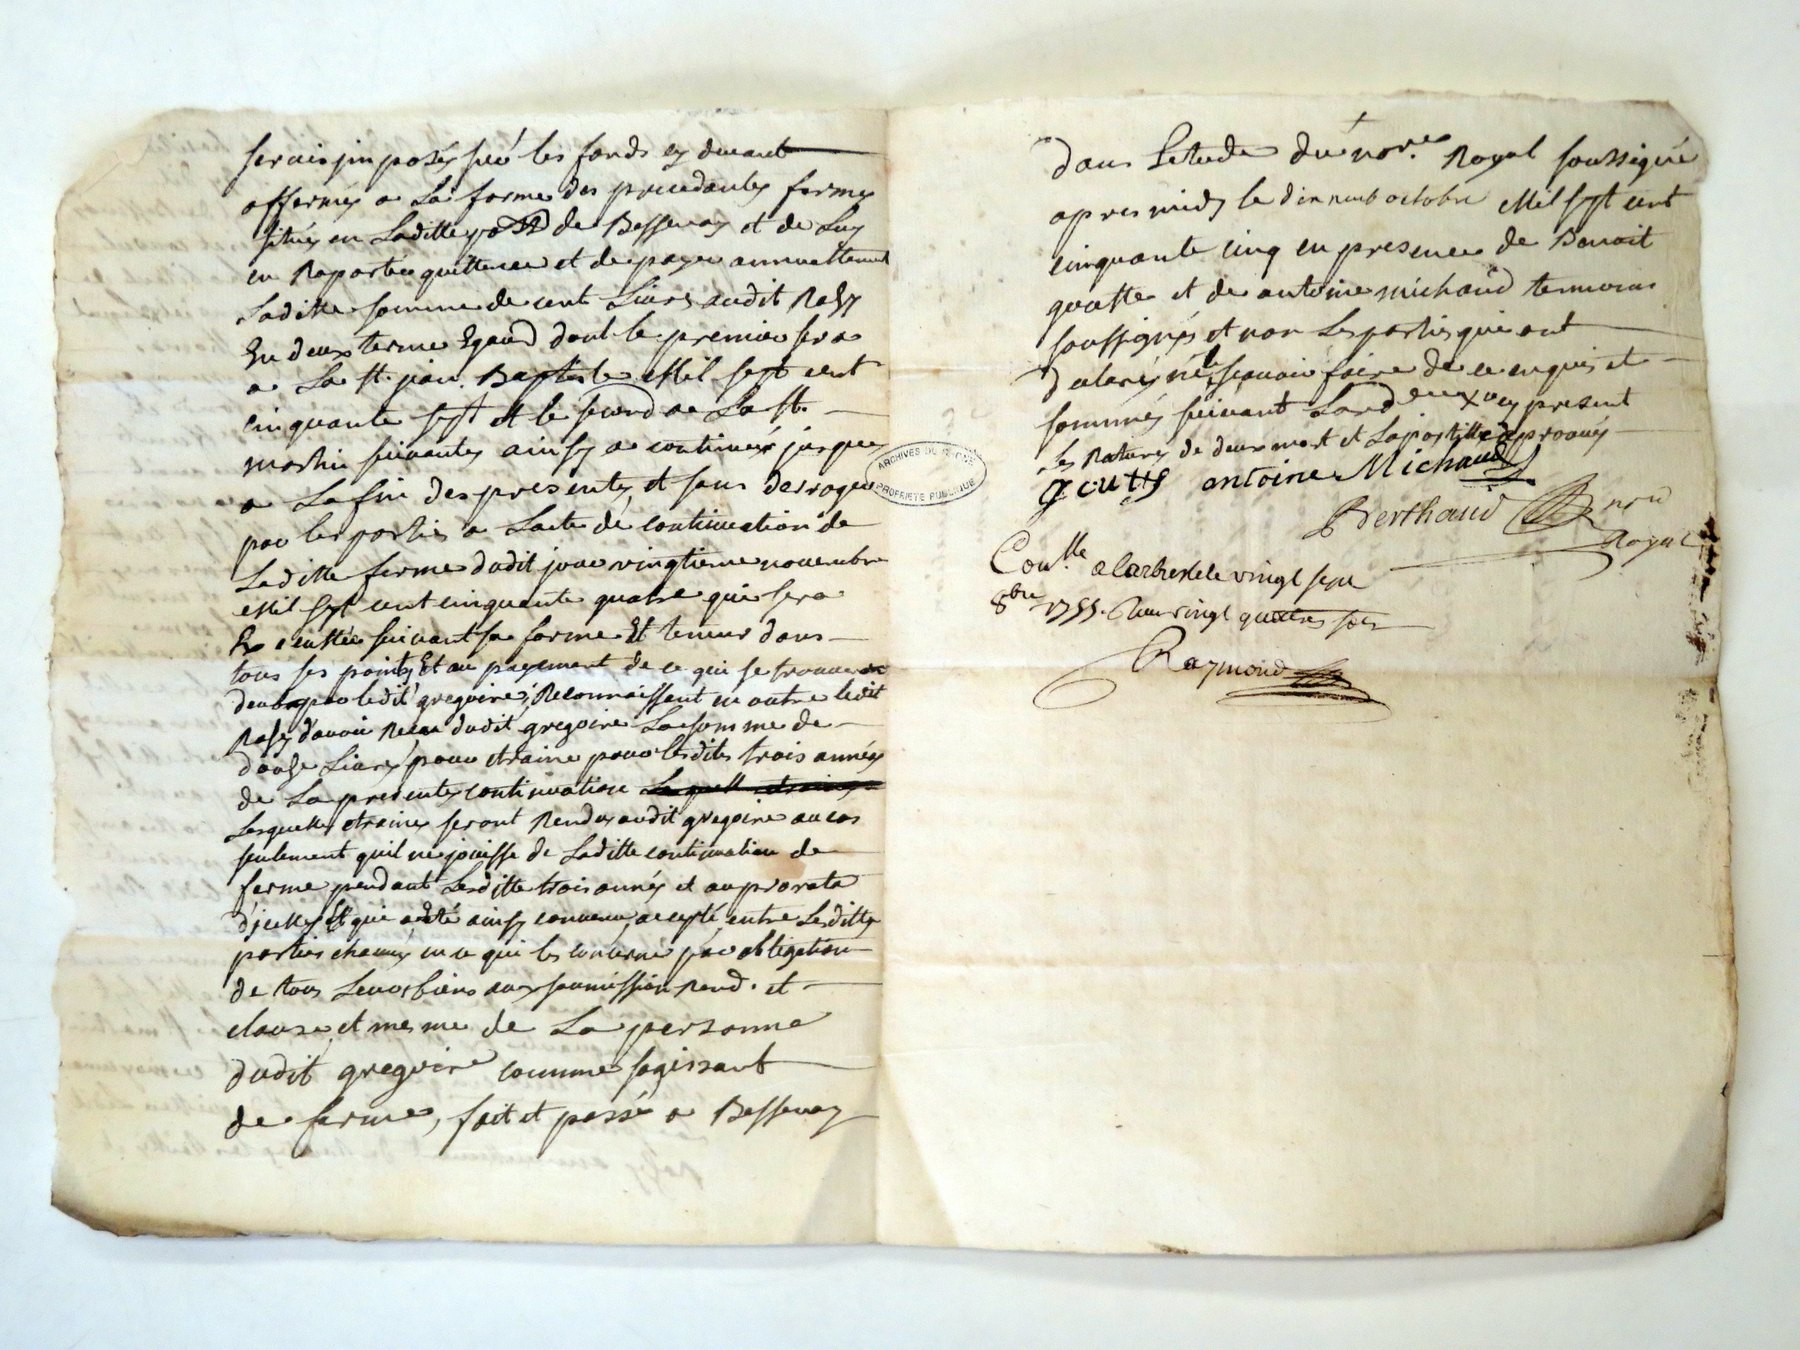 serais imposés sur les fonds cy devant
affermés a La forme des precedantes fermes
situés en Laditte de Bessenay et de Luy
en Raporter quittence et de payer annuellement
Laditte somme de cent Livres audit
En deux terme Egaud dont le premier sera
a La st. jean Baptiste Mil sept cent
cinquante sept et le second a La st.
martin suivantes ainsy a continuer jusques
a La fin des presentes, et sans derroger
par les parties a Lacte de continuation de
Laditte ferme dudit jour vingtieme novembre
Mil sept cent cinquante quatre qui sera
Executtée suivant sa forme Et teneur dans
tous ses points Et au payement de ce qui se trouvera
deub par ledit gregoire, Reconnaissent en outre ledit
d'avoir Receu dudit gregoire La somme de
douze Livres pour etraine pour lesdites trois années
de La presentes continuation
Lesquelles etraines seront Rendus audit gregoire au cas
seulement quil ne jouisse de Laditte continuation de
ferme pendant Lesditte trois annés et au prorata
d'jcelles Et qui a eté ainsy convenu, accepté, entre Lesdittes
parties chacuns en ce qui les concerne par obligation
de tous Leurs biens aux soumission Rend. et
clause, et mesme de La personne
dudit gregoire comme sagissant
de ferme, fait et passé a Bessenay
dans Letude du nore. Royal soussigné
apres midy le dix neuf octobre Mil sept cent
cinquante cinq en presence de Benoit
goutte et de antoine michaud temoins
soussignés et non Les parties qui ont
declarés ne scavoir faire de ce enquis et
sommés suivant Lord
Les Rature de deux mot et Lapostille aprouvés
goutte antoine Michaud
Berthaud nore
Royal
Conlle a Larbresle le vingt sept
8bre 1755. Recu vingt quatre sols
Raymond
ARCHIVES DU RHONE
PROPRIETE PUBLIQUE